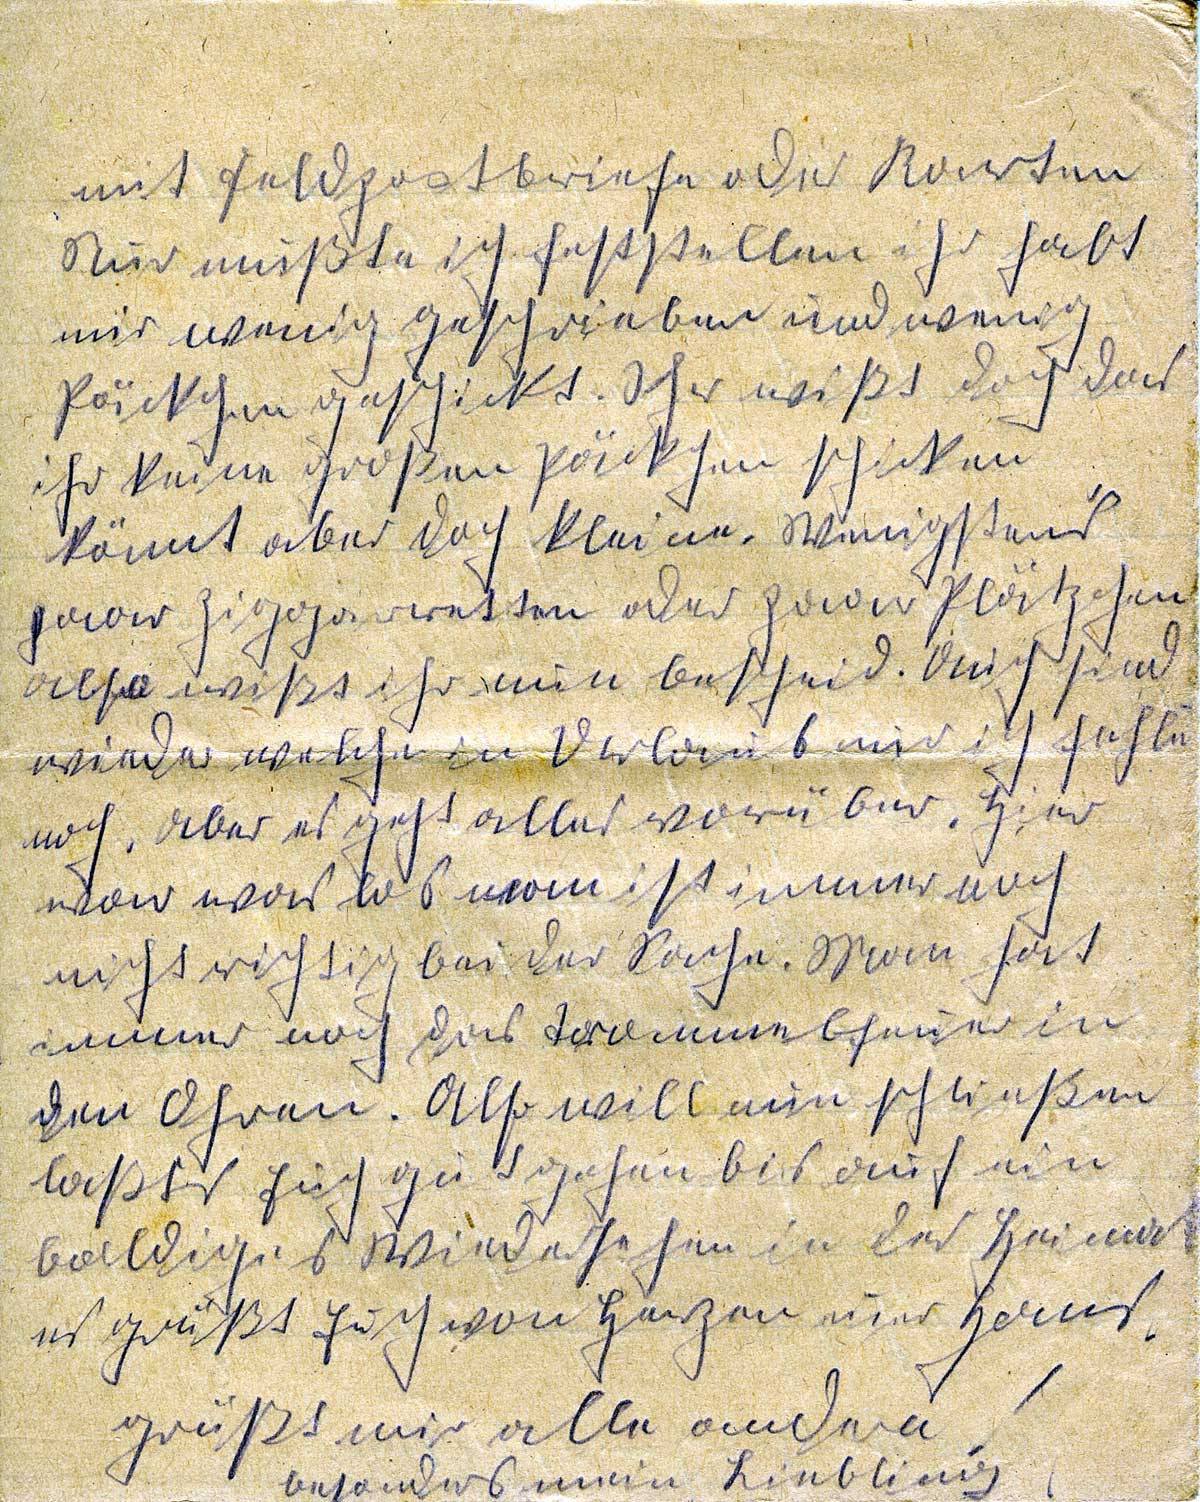 mit Feldpostbriefe oder Karten
Nur mußte ich feststellen ihr habt
mir wenig geschrieben und wenig
Päckchen geschickt. Ihr wißt doch das
ihr keine großen Päckchen schicken
könnt aber doch kleine. Wenigstens
paar Ziggarretten oder paar Plätzchen
also wißt ihr nun bescheid. Auch sind
wieder welche in Urlaub nur ich fehle
noch. Aber es geht alles vorüber. Hier
war was los man ist immer noch
nicht richtig bei der Sache. Man hat
immer noch das Trommelfeuer in
den Ohren. Also will nun schließen
laßts Euch gut gehen bis auf ein
baldiges Wiedersehen in der Heimat
es grüßt Euch von Herzen euer Hans.
grüßt mir alle andern!
besonders mein Liebling